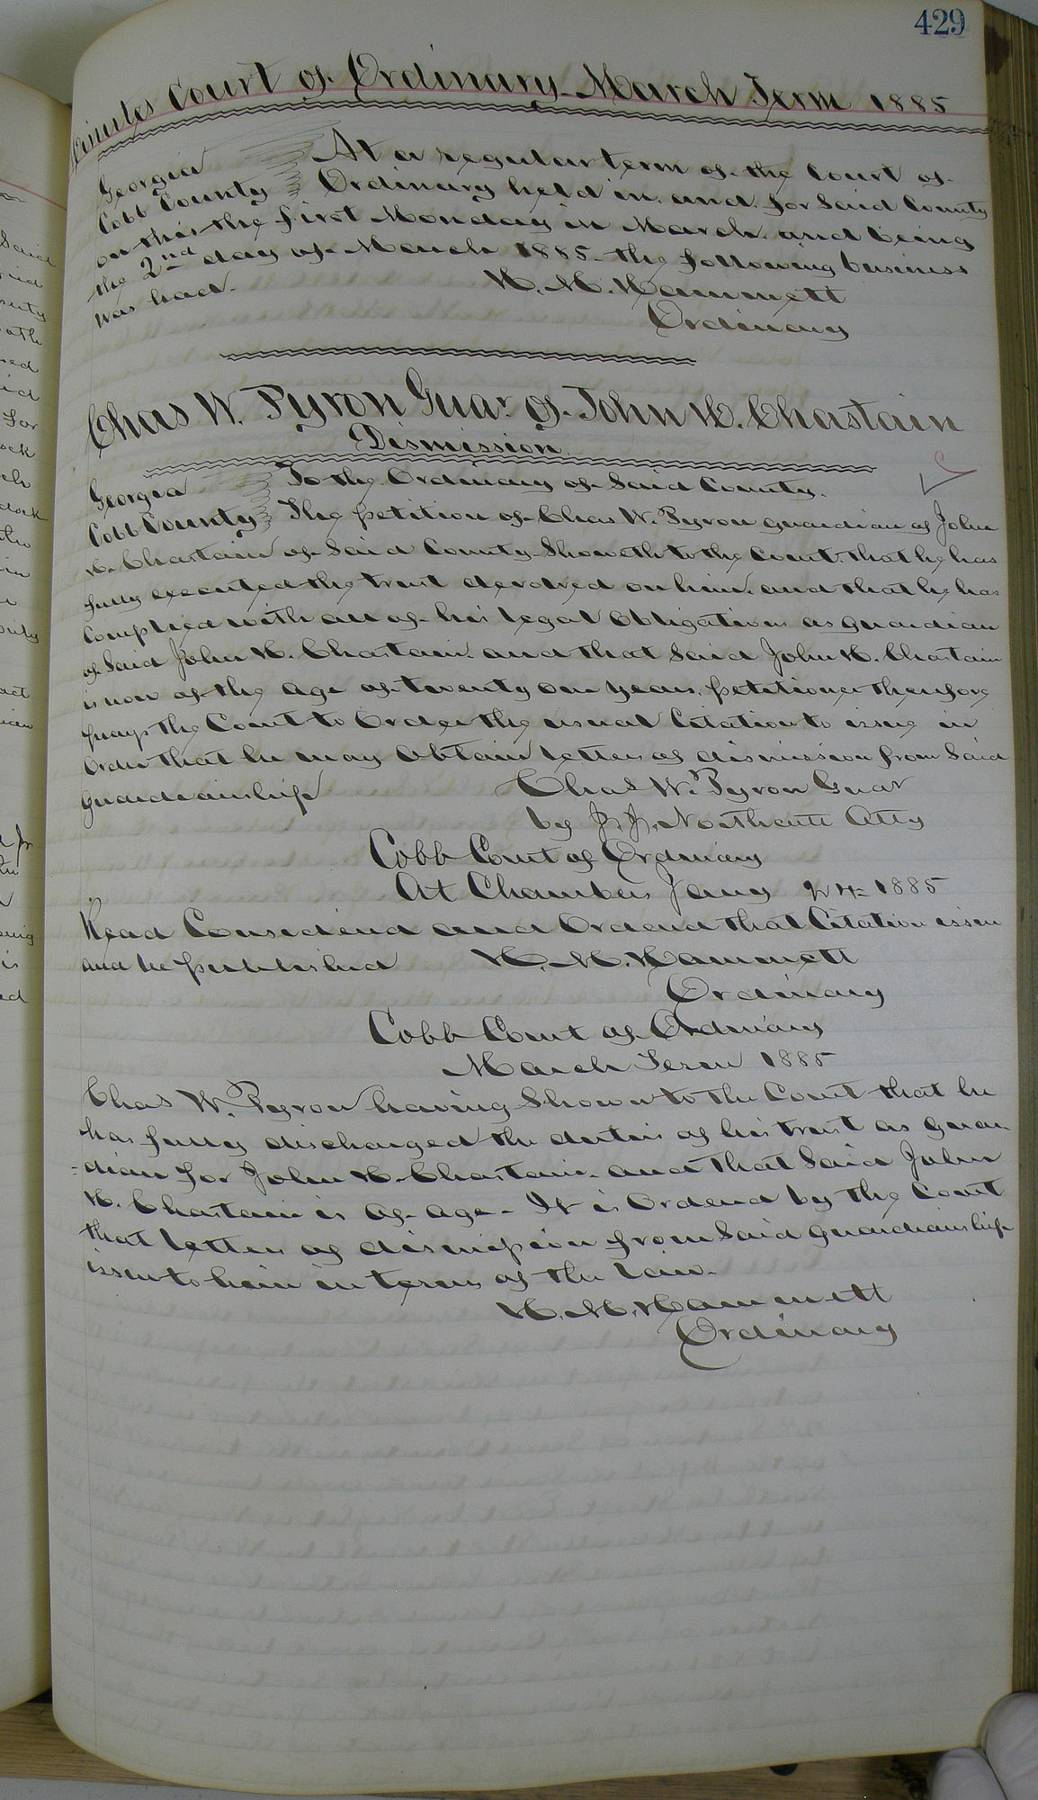 429
Minutes Court of Ordinary March Term 1885
Georgia At a regular term of the Court of
Cobb County Ordinary held in and for Said County
on this the first Monday in March and being
the 2nd day of March 1885 the following business
was had.
H. M. Hammett
Ordinary
Chas W. Pyron Guar of John H. Chastain
Dismission
Georgia To the Ordinary of Said County.
Cobb County The petition of Chas W. Pyron guardian of John
H. Chastain of Said County Showeth to the Court that he has
fully executed the trust devolved on him and that he has
Complied with all of his legal Obligations as guardian
of Said John H. Chastain and that Said John H. Chastain
is now of the age of twenty one years, petitioner therefore
prays the Court to Order the usual Citation to issue in
Order that he may Obtain letters of dismission from Said
guardianship
Chas W. Pyron Guar
by J. J. Northcutt Atty
Cobb Court of Ordinary
At Chambers Jany 24 1885
Read Considered and Ordered that Citation issue
and be published H. M. Hammett
Ordinary
Cobb Court of Ordinary
March Term 1885
Chas W. Pyron having Shown to the Court that he
has fully discharged the duties of his trust as guar
-dian for John H. Chastain and that Said John
H. Chastain is of age - It is Ordered by the Court
that letters of dismission from Said guardianship
issue to him in terms of the law.
H. M. Hammett
Ordinary